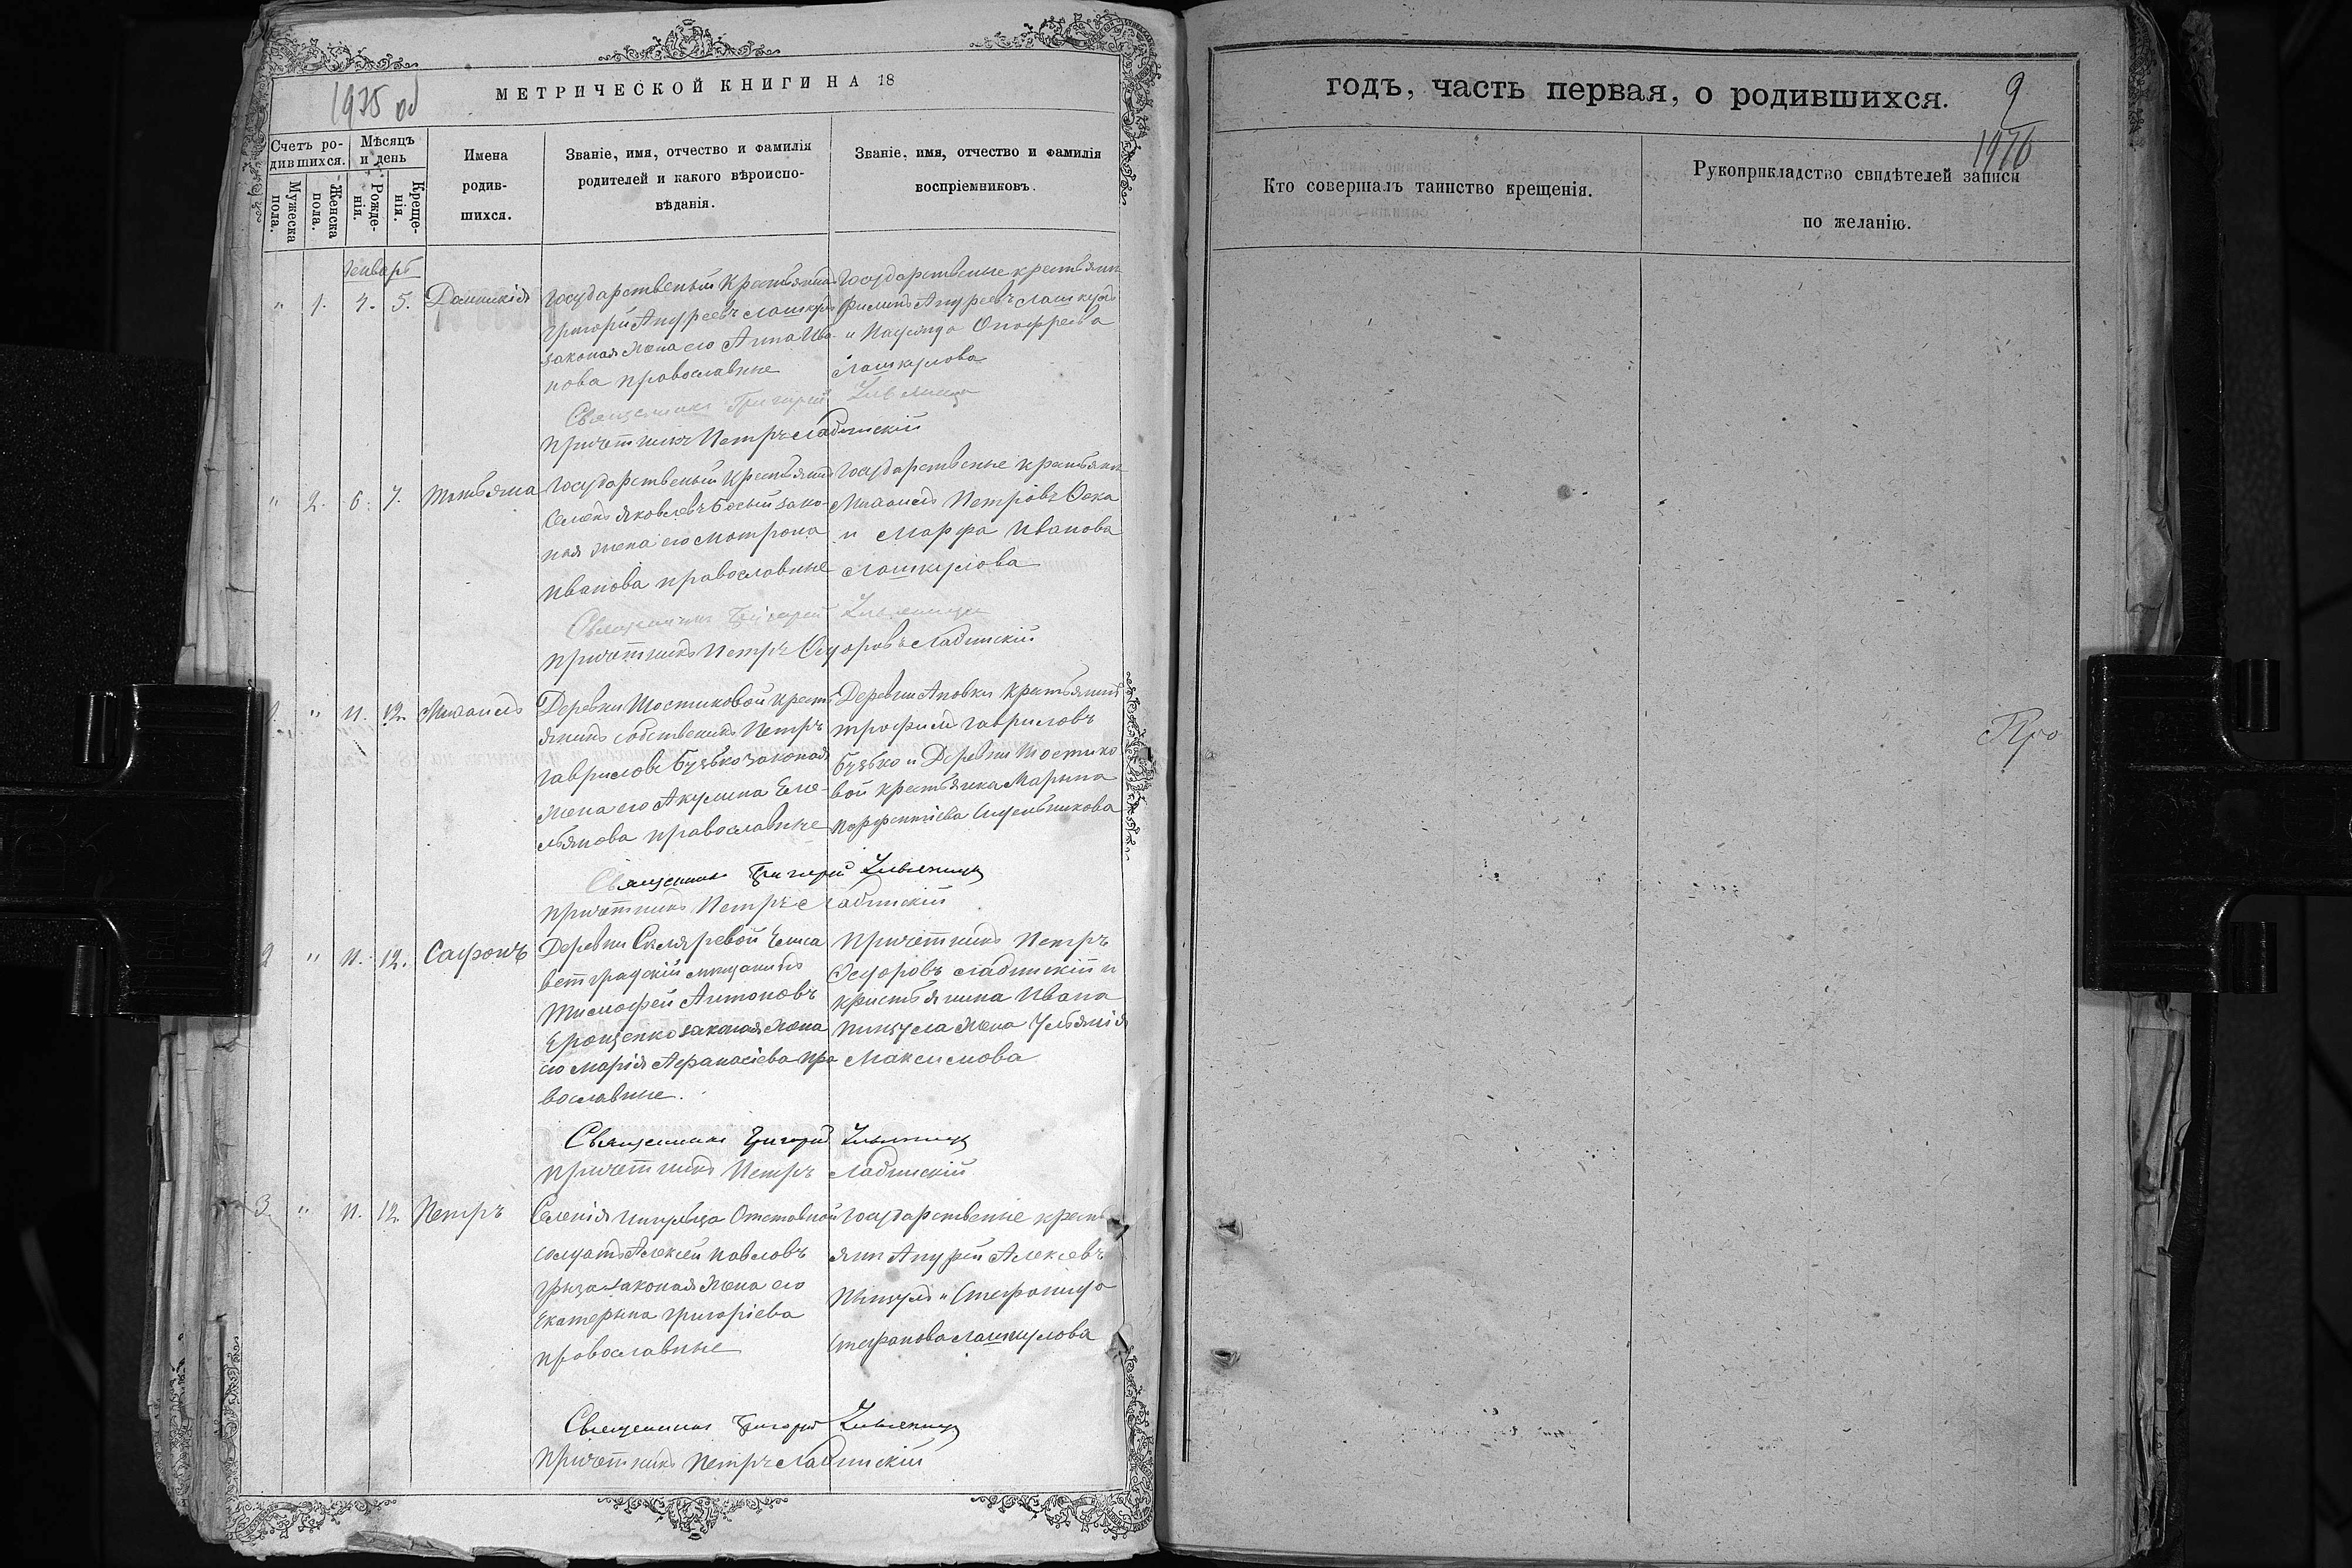 МЕТРИЧЕСКОЙ КНИГИ НА 18
1975 об
Счетъ ро-
дившихся.
Мѣсяцъ
и день
Мужеска
пола.
Женска
пола.
Рожде-
нія.
Креще-
нія.
Имена
родив-
шихся.
Званіе, имя, отчество и фамилія
родителей и какого вѣроиспо-
вѣданія.
Званіе, имя, отчество и фамилія
воспріемниковъ.
Генварь
" 1. 4. 5. Домникія
Государственый Крестьянинъ
Григорій Андреевъ Лашкулъ
законая жена его Анна Ива-
нова православные
Государственые крестьяни
Филипъ Андреевъ Лашкулъ
и Онофреева
Лашкулова
Священникъ Григорій
Причетникъ Петръ Ладинскій
" 2. 6. 7. Татьяна
Государственый Крестьянинъ
Яковлевъ Босый зако-
ная жена его Мотрона
Иванова православные
Государственые крестьяни
Михаилъ Петровъ
и Марфа Иванова
Лашкулова
Священникъ Григорій
Причетникъ Петръ Ѳедоровъ Ладинскій
1. " 11. 12. Михаилъ
Деревни Шостиковой Крест-
янинъ собственикъ Петръ
Гавриловъ Бузько законая
жена его Акулина Еме-
льянова православные
Деревни Крестьянинъ
Трофимъ Гавриловъ
Бузько и Деревни Шостико
вой крестьянка Марына
Парфентіева Сидельникова
Священникъ Григорій
Причетникъ Петръ Ладинскій
2 " 11. 12. Сафонъ
Деревни Скляревой Елиса
ветградскій мищанинъ
Тимофей Антоновъ
Ерощенко законая жена
его Марія Афанасіева пра
вославные.
Причетникъ Петръ
Ѳедоровъ Ладинскій и
кристьянина Ивана
жена Ульянія
Максимова
Священникъ Григорій
Причетникъ Петръ Ладинскій
3. " 11. 12. Петръ
Селенія Отставной
солдатъ Алексей Павловъ
законая жена его
Екатерына Григоріева
православные
Государственые кресть
яни Андрей Алексевъ
и Стефанида
Стефанова Лашкулова
Священникъ Григорій
Причетникъ Петръ Ладинскій
годъ, часть первая, о родившихся.
9
1976
Кто совершалъ таинство крещенія.
Рукоприкладство свидѣтелей записи
по желанію.
Про